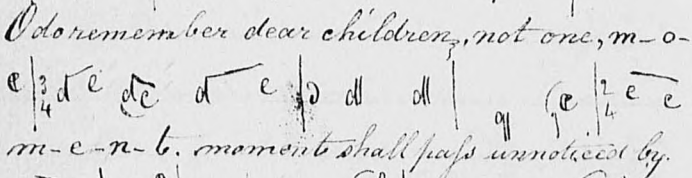 O do remember dear children, not one, m-o-
e | 3/4 d e de d e | d d d | q e | 2/4 e e
m-e-n-t. moment shall pass unnoticed by.